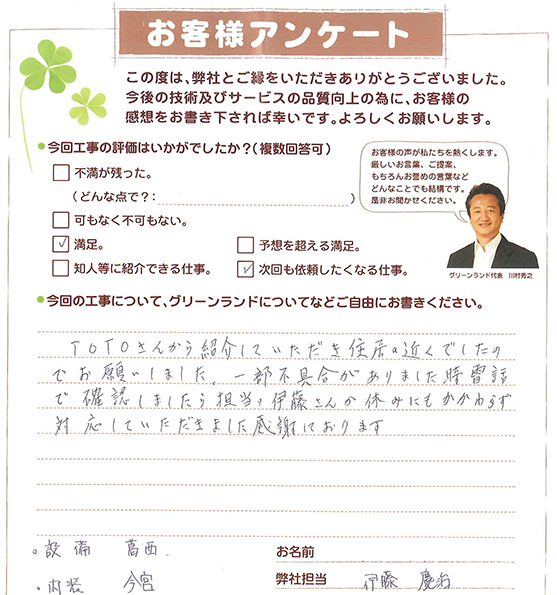 お客様アンケート
この度は、弊社とご縁をいただきありがとうございました。
今後の技術及びサービスの品質向上の為に、お客様の
感想をお書き下されば幸いです。よろしくお願いします。
●今回工事の評価はいかがでしたか？（複数回答可）
不満が残った。
（どんな点で？：　）
可もなく不可もない。
✓満足。
予想を超える満足。
知人等に紹介できる仕事。
✓次回も依頼したくなる仕事。
お客様の声が私たちを熱くします。
厳しいお言葉、ご提案、
もちろんお誉めの言葉など
どんなことでも結構です。
是非お聞かせください。
グリーンランド代表　川村秀之
●今回の工事について、グリーンランドについてなどご自由にお書きください。
TOTOさんから紹介していただき住居の近くでしたの
でお願いしました。一部不具合がありました時電話
で確認しましたら担当の伊藤さんがん休みにもかかわらず
対応していただきました感謝しております
。設備　葛西
お名前
・内装　今宮
弊社担当　伊藤　慶治